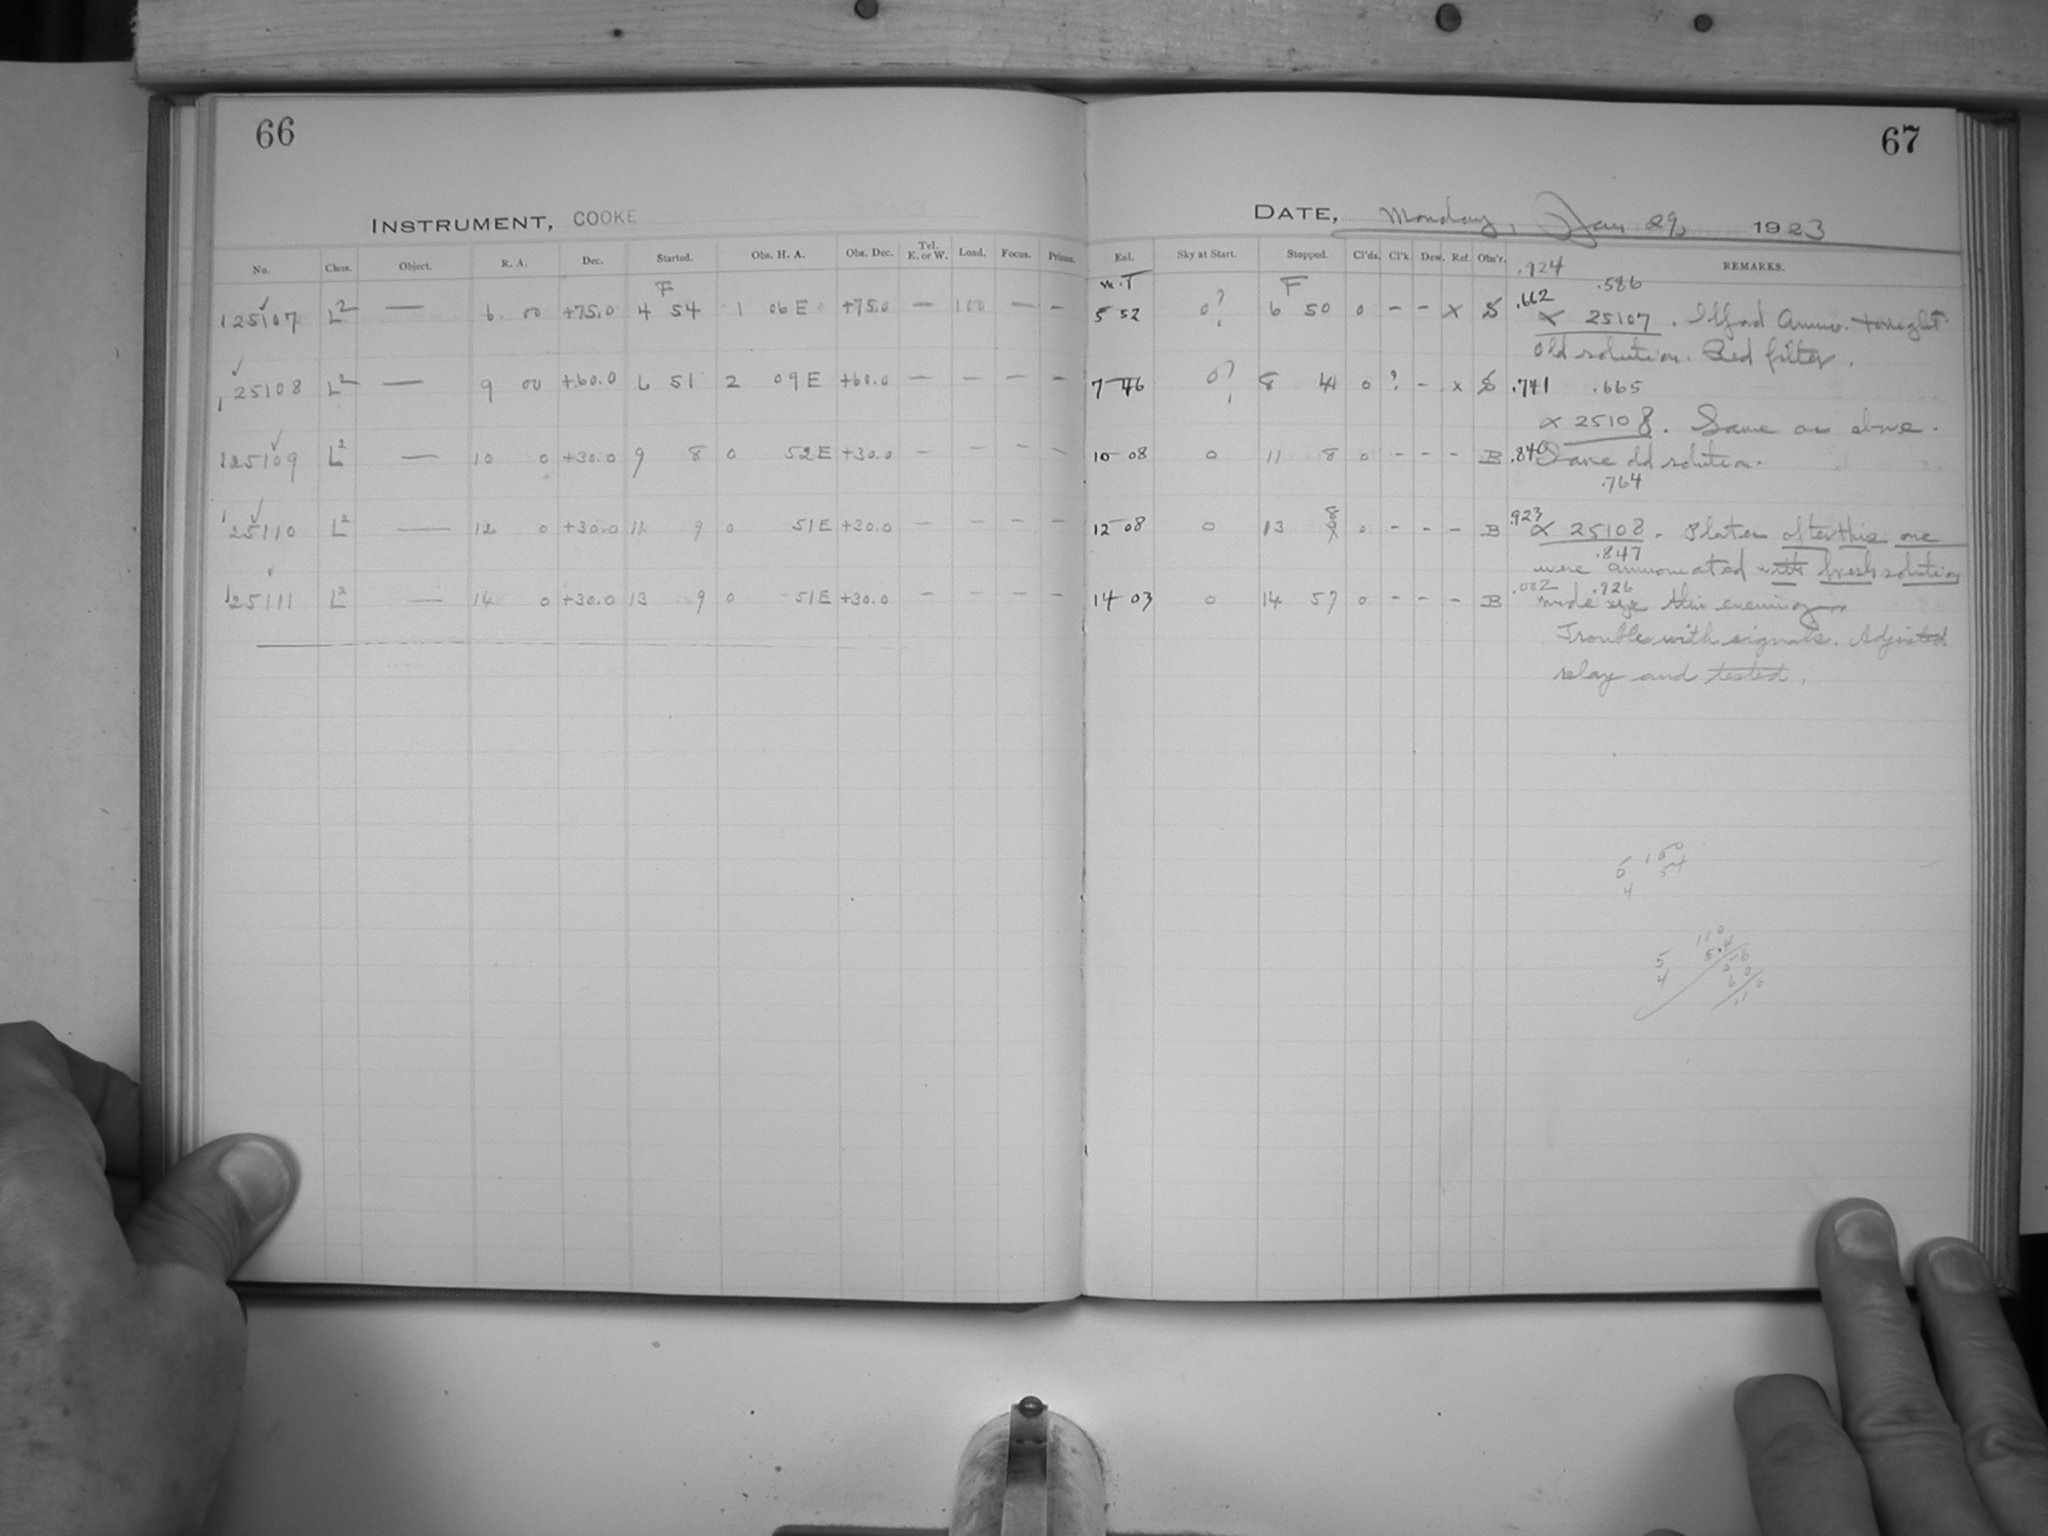 66
67
INSTRUMENT, COOKE
DATE, Monday, Jan 29, 1923
No. Class. Object. R. A. Dec. Started. Obs. H. A. Obs. Dec. Tel. E. or W. Load. Focus. Prisms.
Exl. Sky at Start. Stopped. Cl'ds. Cl'k. Dew. Ref. Obs'r. REMARKS.
F
M.T F .924 .586
125107 L2 — 6 00 +75.0 4 54 1 06 E +75.0 — 100 — — 5 52 0? 6 50 0 - - x S .662 x 25107. Ilford Ammo. tonight
Old solution. Red filter.
125108 L2 — 9 00 +60.0 6 51 2 09 E +60.0 — — — — 7 46 0? 8 41 0 ? - x S .741 .665
x 25108. Same as above.
125109 L2 — 10 0 +30.0 9 8 0 52 E +30.0 - - - - 10 08 0 11 8 0 - - - B .840 Same old solution.
.764
125110 L2 — 12 0 +30.0 11 9 0 51 E +30.0 - - - - 12 08 0 13 8 0 - - - B .923 x 25108. Plates after this one
.847
were ammoniated with fresh solution
.002 .926
125111 L2 — 14 0 +30.0 13 9 0 51 E +30.0 - - - - 14 03 0 14 57 0 - - - B made this evening
Trouble with signals. Adjusted
relay and tested.
6 1 50
4 54
110
5 54
4 56
60
110